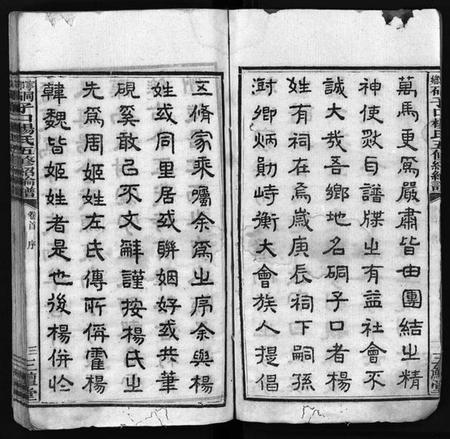 萬馬更爲嚴肅皆由團結之精
神使然自譜牒之有益社會不
誠大哉吾鄉地名硐子口者楊
姓有祠在焉歲庚辰祠下嗣孫
澍卿炳勛峙衡大會族人提倡
五脩家乘囑余爲之序余與楊
姓或同里居或聯姻好或共筆
硯奚敢已不文辭謹按楊氏之
先爲周姬姓左氏傳所偁霍楊
韓魏皆姬姓者是也後楊併於
硐子口楊氏五修
卷首 序